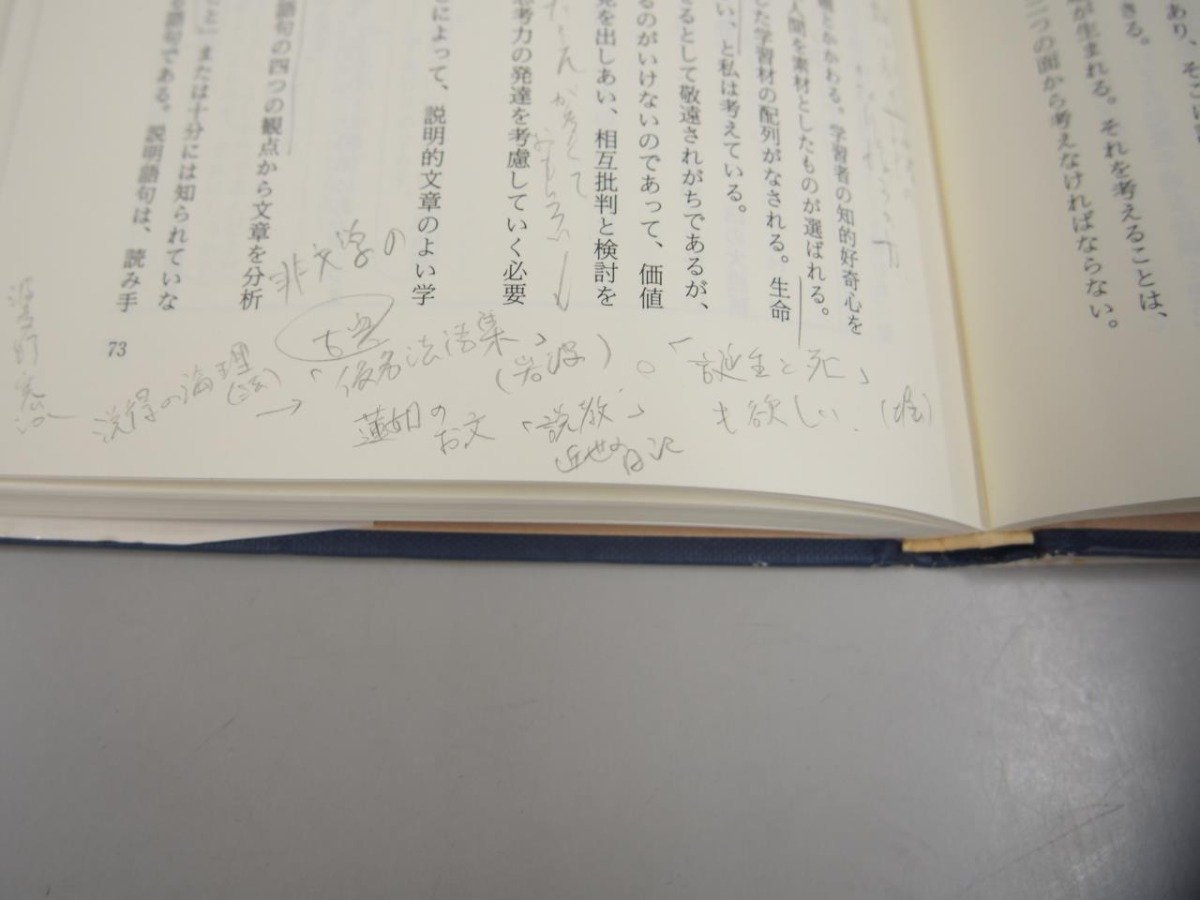 あり、そこに
きる。
が生まれる。それを考えることは、
二つの面から考えなければならない。
とかかわる。学習者の知的好奇心を
人間を素材としたものが選ばれる。
した学習材の配列がなされる。生命
い、と私は考えている。
さるとして敬遠されがちであるが、
るのがいけないのであって、価値
見を出しあい、相互批判と検討を
思考力の発達を考慮していく必要
とによって、説明的文章のよい学
語句の四つの観点から文章を分析
こと」または十分には知られていな
る語句である。説明語句は、読み手
73
非文学の
古典
「仮名法語集」
(岩波)
。「誕生と死」
も欲しい。
説得の論理
→
蓮如の
お文
「説教」
近世の